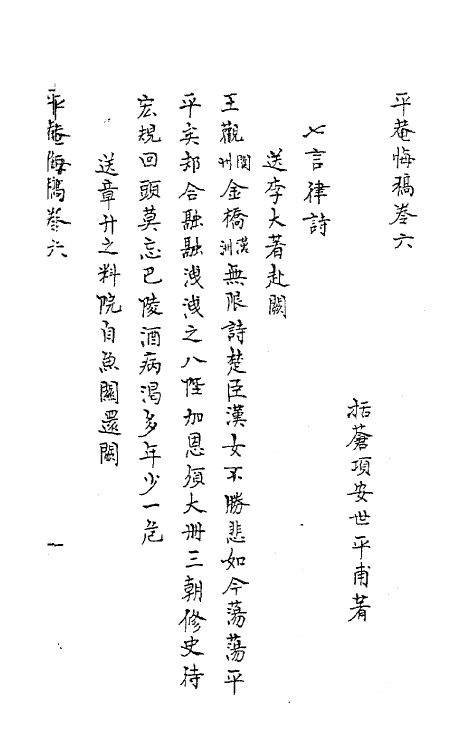 平菴悔稿卷六
括蒼項安世平甫著
七言律詩
送李大著赴闕
王觀閬州金橋漢洲無限詩楚臣漢女不勝悲如今蕩蕩平
平矣却合融融洩洩之八陛加恩須大冊三朝修史待
宏規回頭莫忘巴陵酒病渴多年少一卮
送章升之料院自魚關還闕
平菴悔稿卷六
一